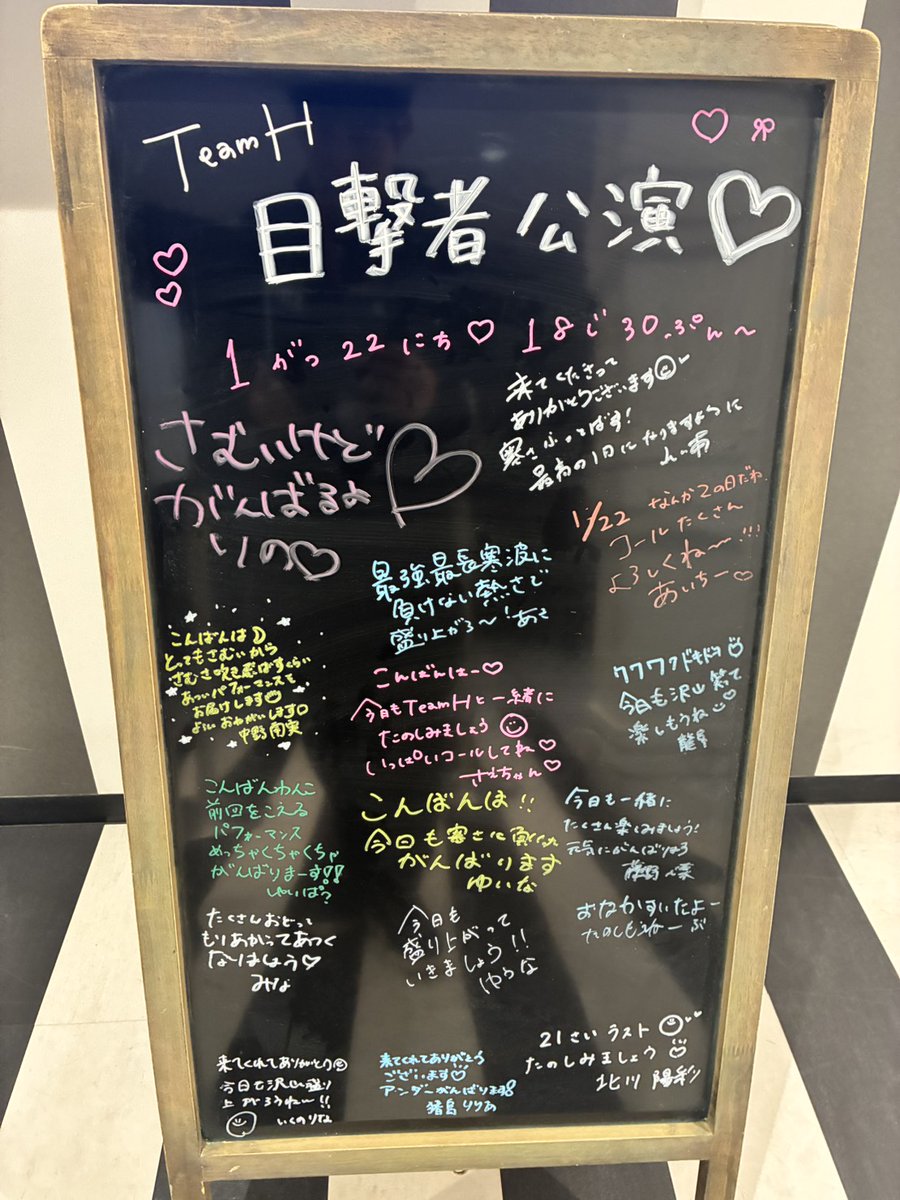 Team H
目撃者公演♡
1がつ22にち♡ 18じ30ぷん〜
来てくださって
ありがとうございます
寒さふっとばす!
最高の1日になりますように
さむいけど
がんばるよ
りの♡
1/22 なんか2の日だね
コールたくさん
よろしくね〜!!!
あいちー♡
最強最長寒波に
負けない熱さで
盛り上がろ〜!
こんばんは
とってもさむいから
さむさ吹き飛ばすくらい
あついパフォーマンスを
お届けします
よろしくおねがいします
中野 南実
こんばんはー♡
今日もTeamHと一緒に
たのしみましょう
いっぱいコールしてね♡
さえちゃん♡
ワクワクドキドキ
今日も沢山笑って
楽しもうね
こんばんわんこ
前回をこえる
パフォーマンス
めっちゃくちゃくちゃ
がんばりまーす!!
こんばんは!!
今日も寒さに負けない
がんばります
ゆいな
今日も一緒に
たくさん楽しみましょう!
元気にがんばります
たくさんおどって
もりあがってあつく
なりましょう♡
今日も
盛り上がって
いきましょう!!
ゆらな
おなかすいたよー
たのしもうねー
来てくれてありがとう
今日も沢山盛り
上がろうね〜!!
いくのりな
来てくれてありがとう
ございます♡
アンダーがんばります!
猪島りりあ
21さいラスト
たのしみましょう
北川 陽彩